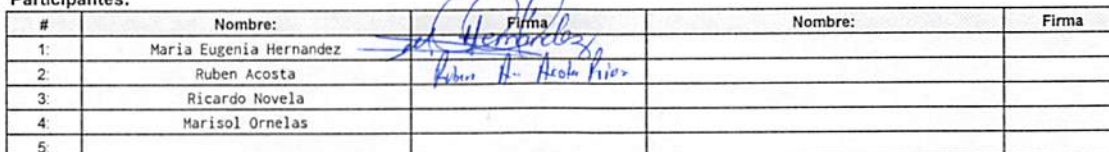 Participantes:
# Nombre: Firma Nombre: Firma
1: Maria Eugenia Hernandez Hernandez
2: Ruben Acosta Ruben A. Acosta
3: Ricardo Novela
4: Marisol Ornelas
5: